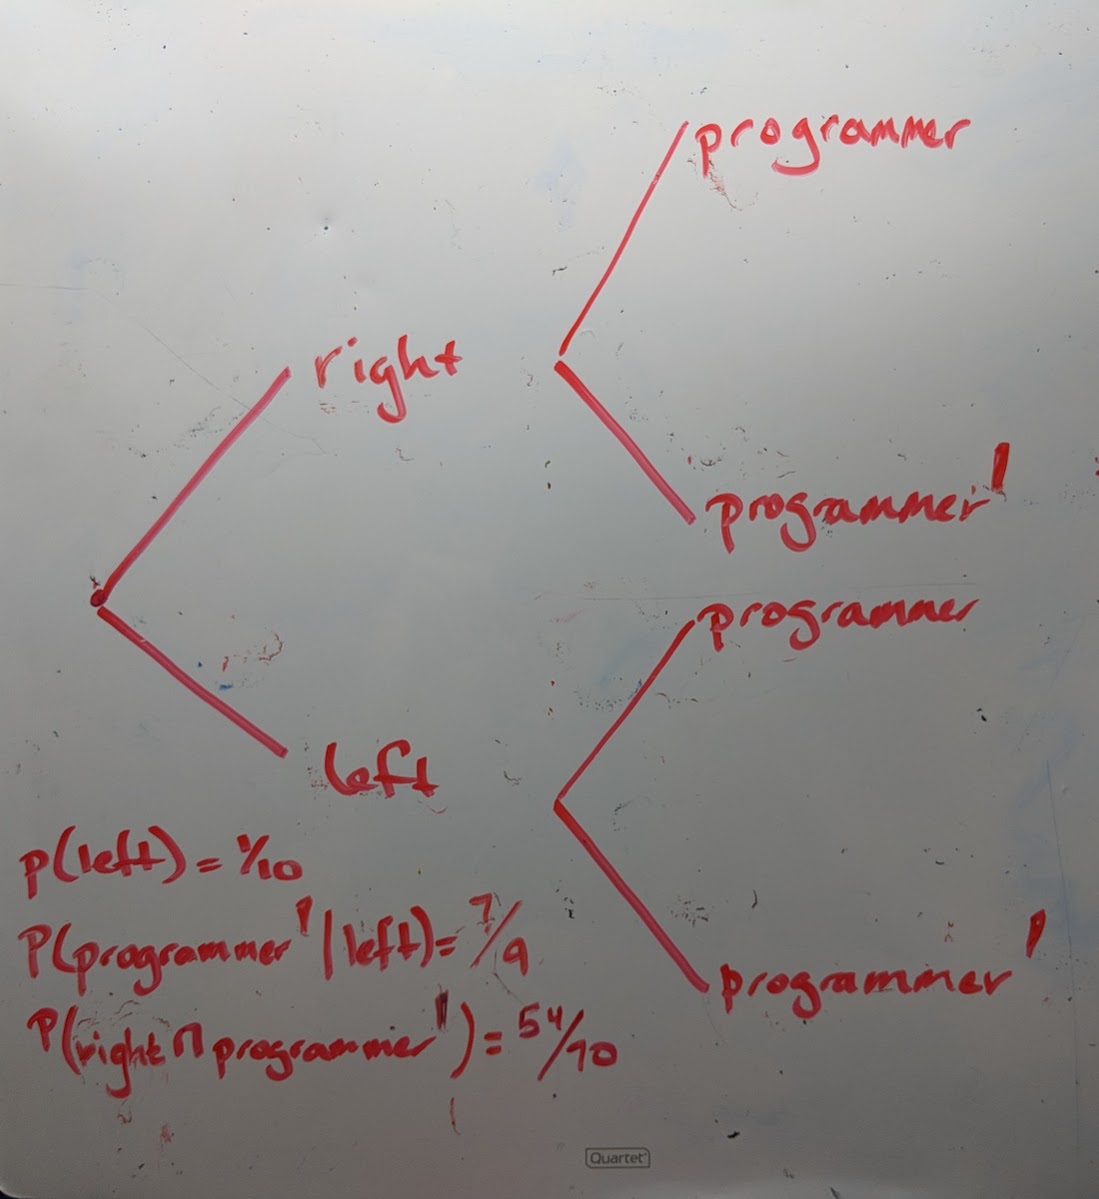 programmer
right
programmer'
programmer
left
programmer'
P(left) = 1/10
P(programmer' | left) = 7/9
P(right ∩ programmer') = 54/70
Quartet